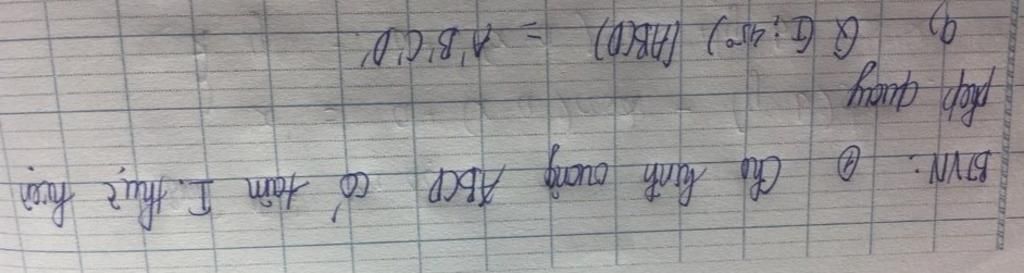 BTVN: ① Cho hình vuông ABCD có tâm I. Thực hiện
phép quay
a) Q (I; 45°) (ABCD) = A'B'C'D'